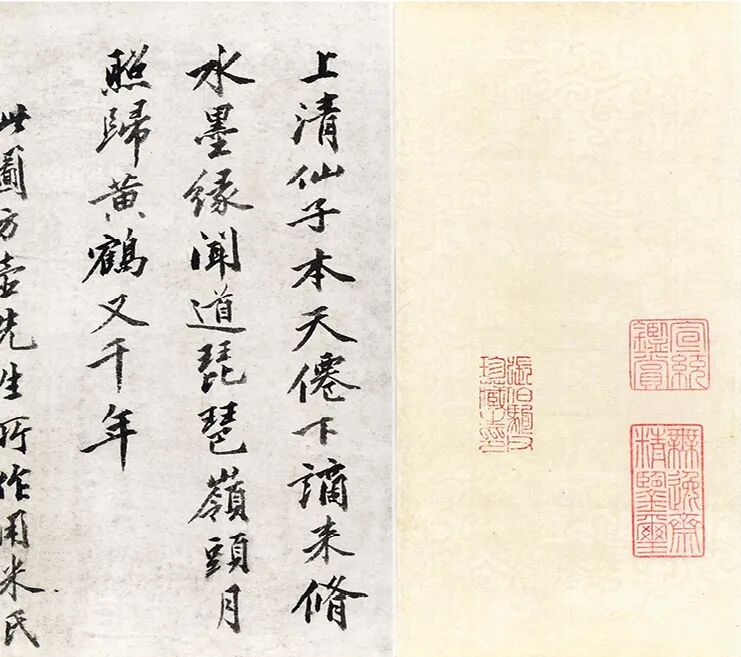 宣統
鑑賞
無逸齋
精鑒璽
張伯駒父
珍藏之印
上清仙子本天僊下謫来脩
水墨緣聞道琵琶嶺頭月
照歸黄鶴又千年
此圖方壺先生所作用米氏